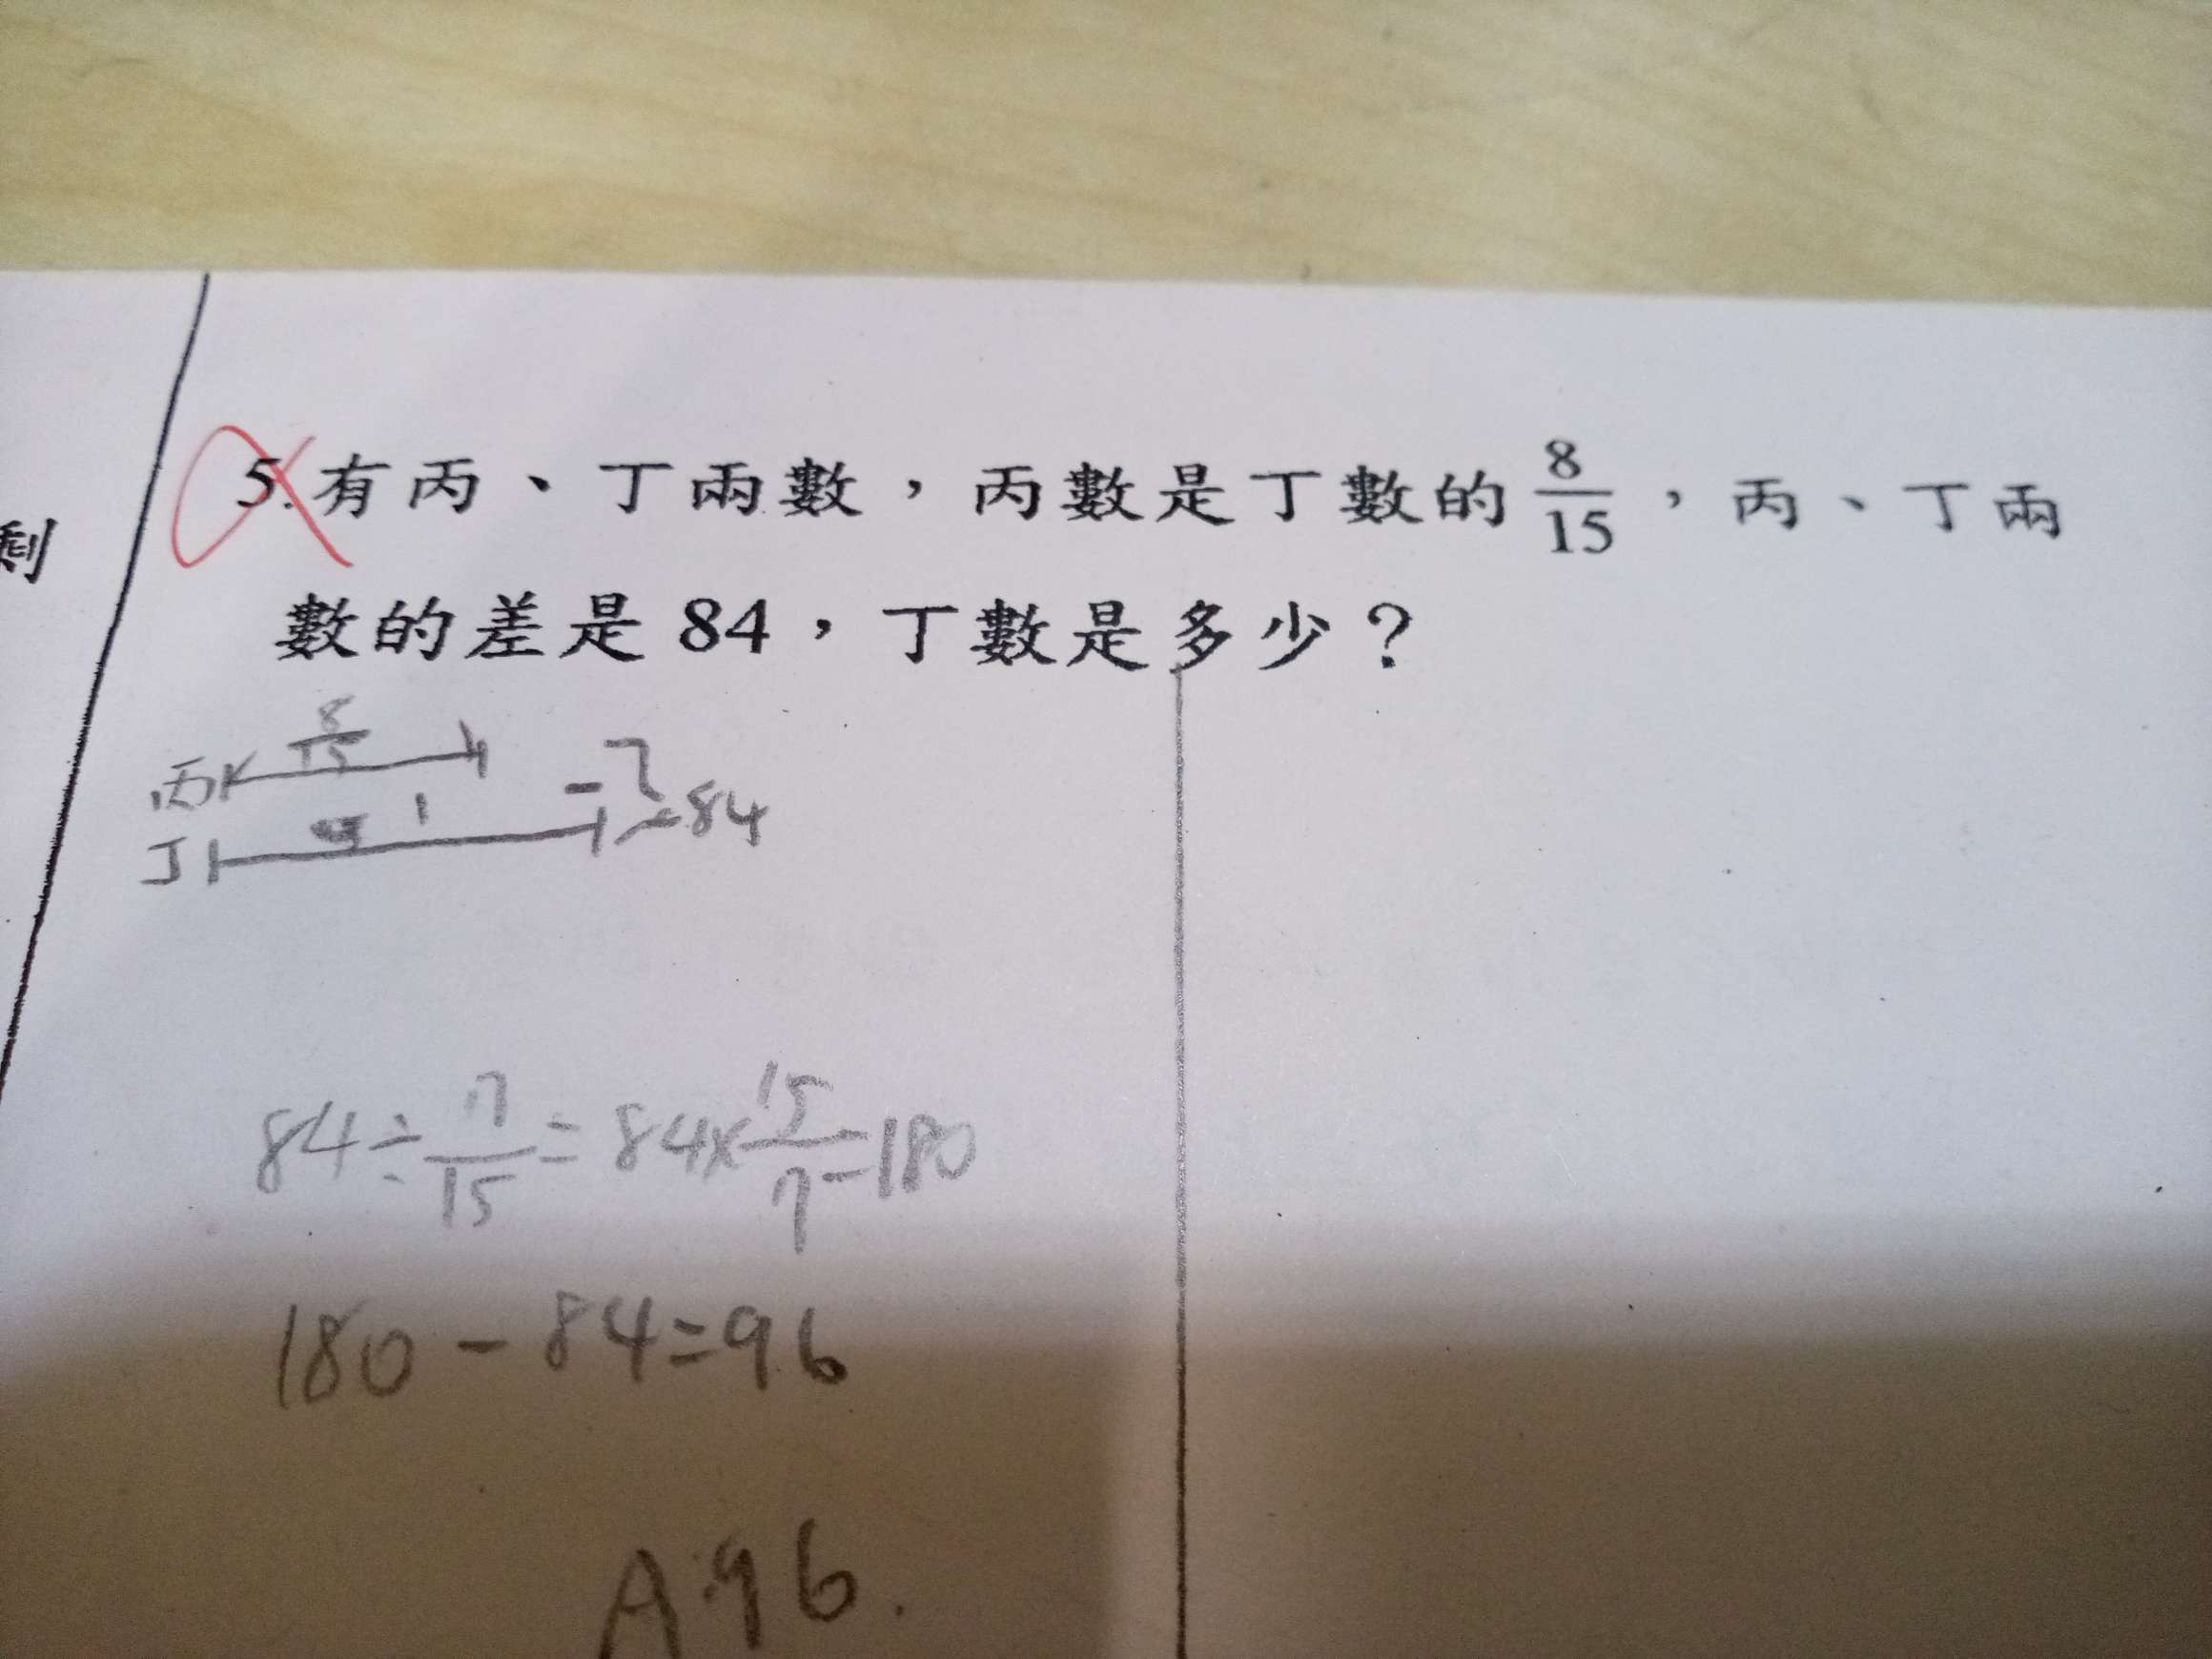 剩
5. 有丙、丁兩數，丙數是丁數的 8/15，丙、丁兩
數的差是 84，丁數是多少？
丙 8/15
丁 1 84
84÷7/15=84×15/7=180
180-84=96
A:96.